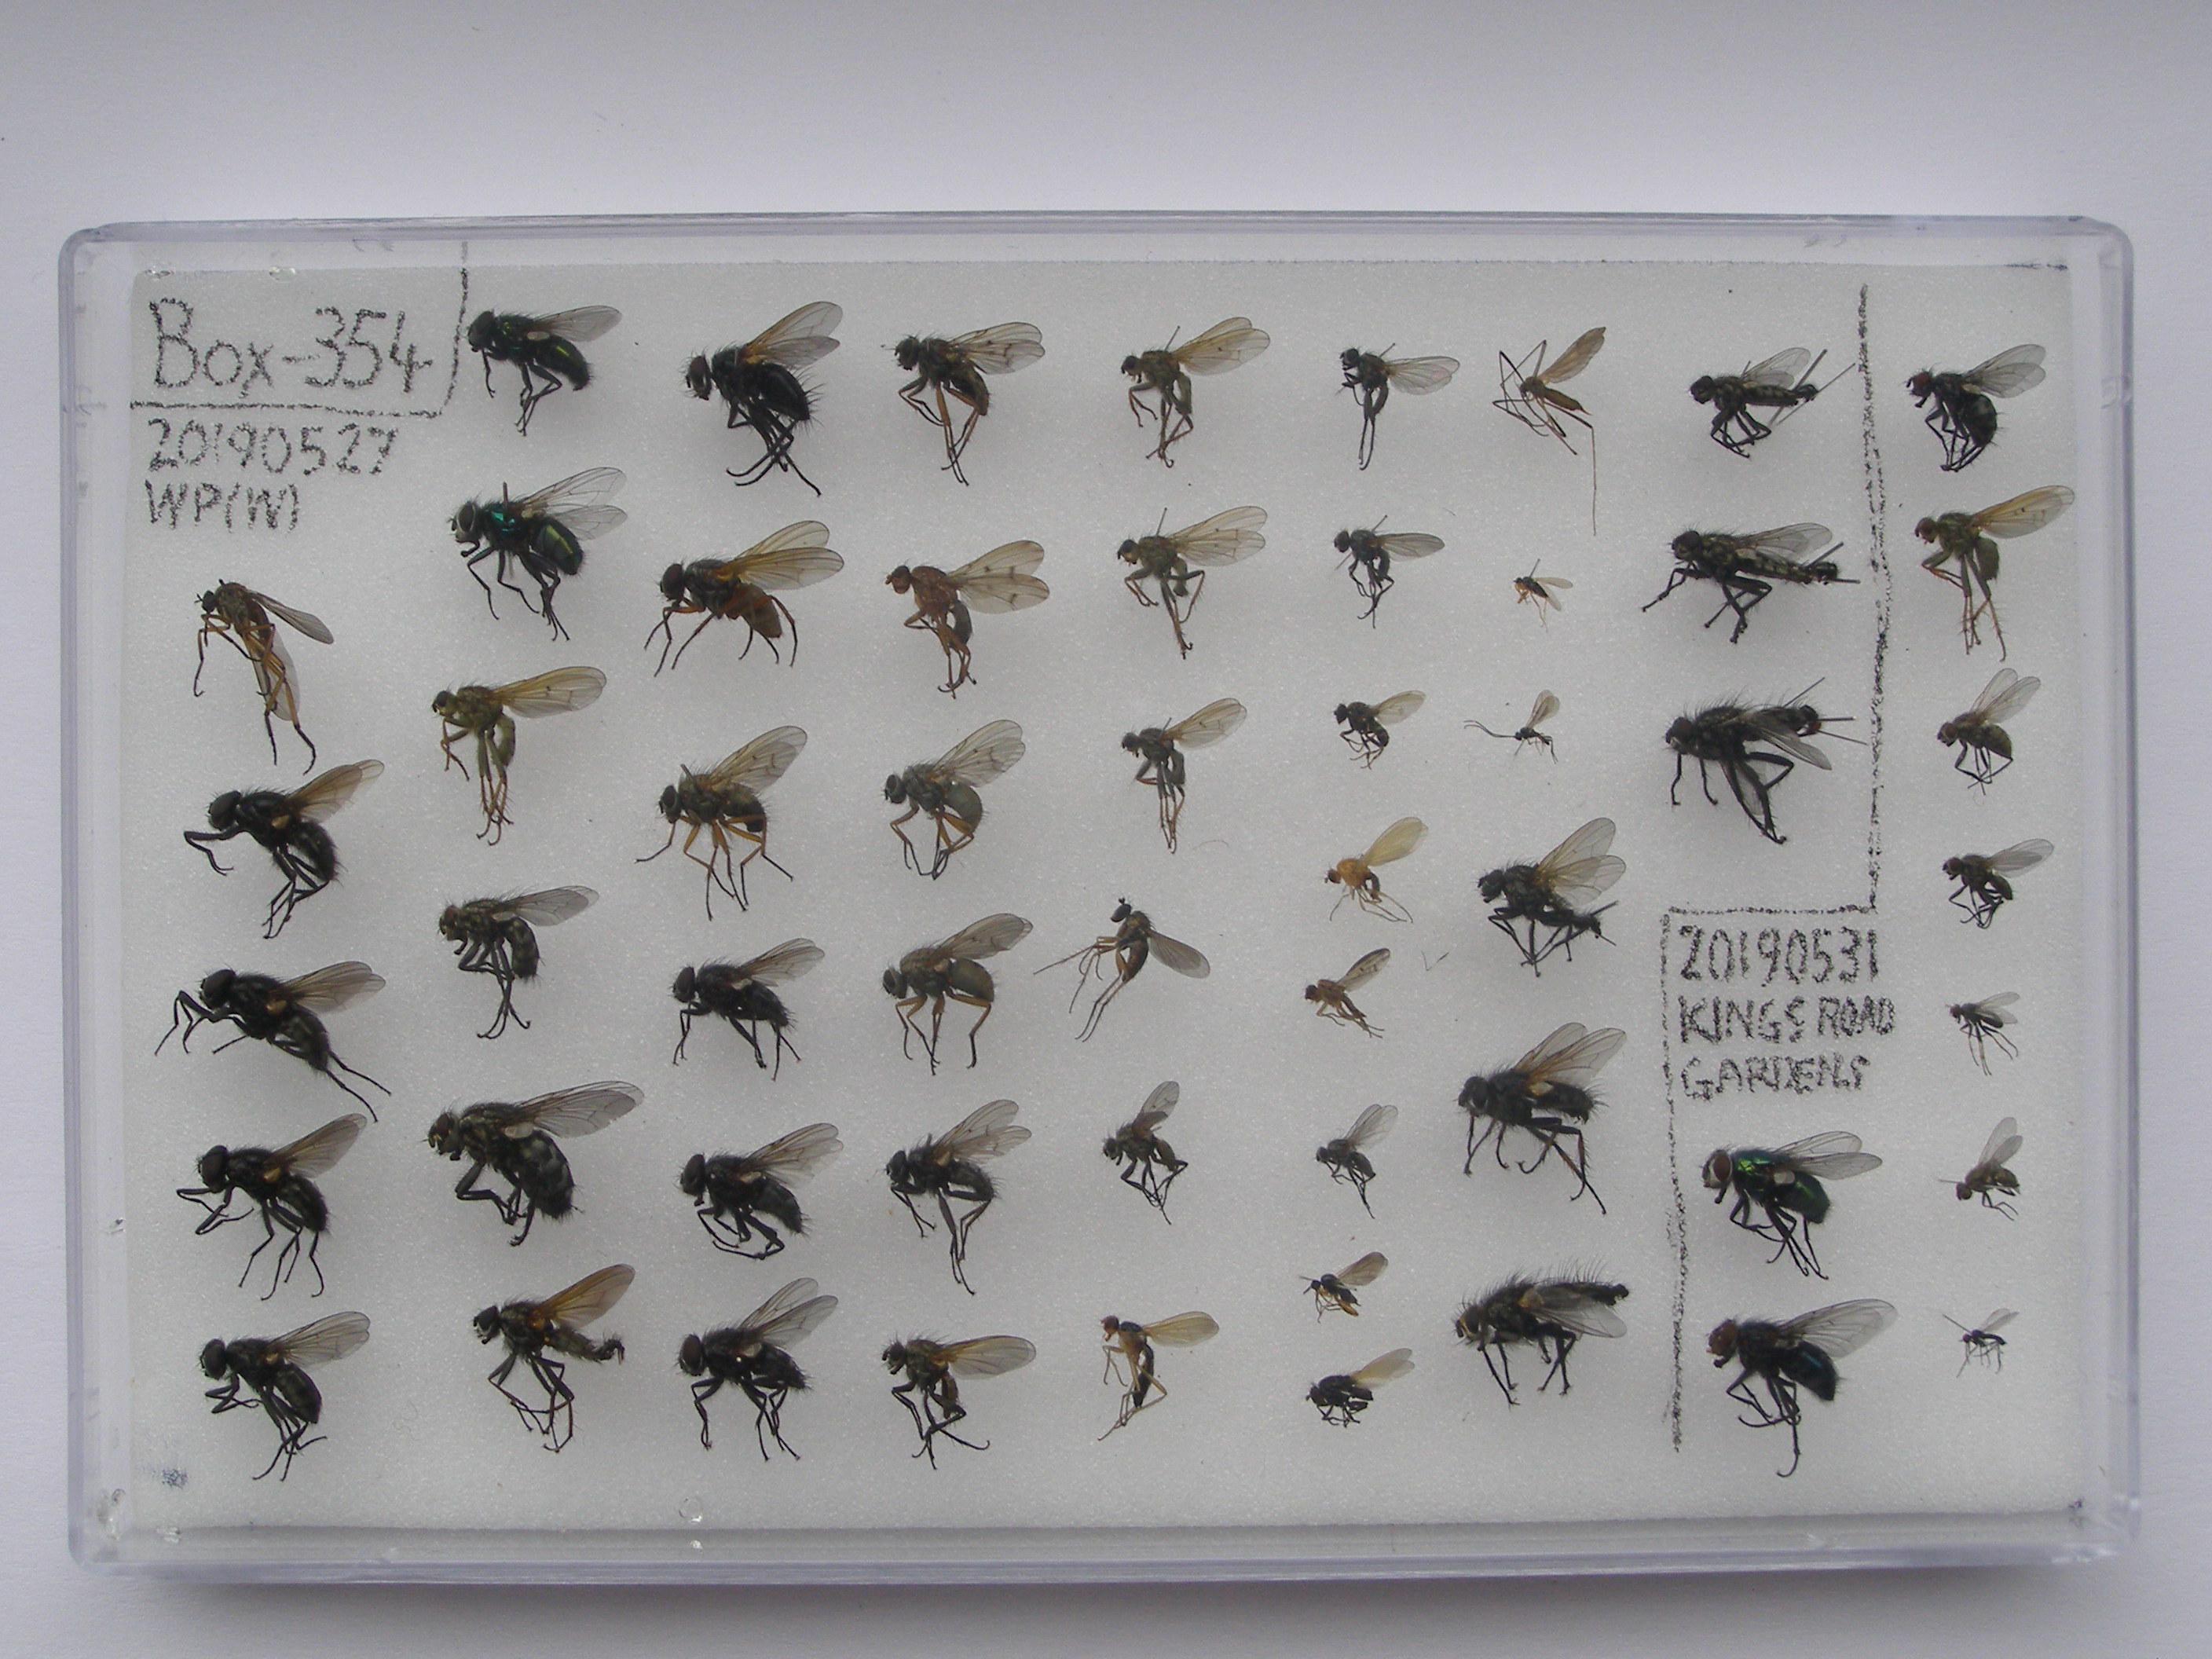 Box-354
20190527
WP(W)
20190531
KINGS ROAD
GARDENS